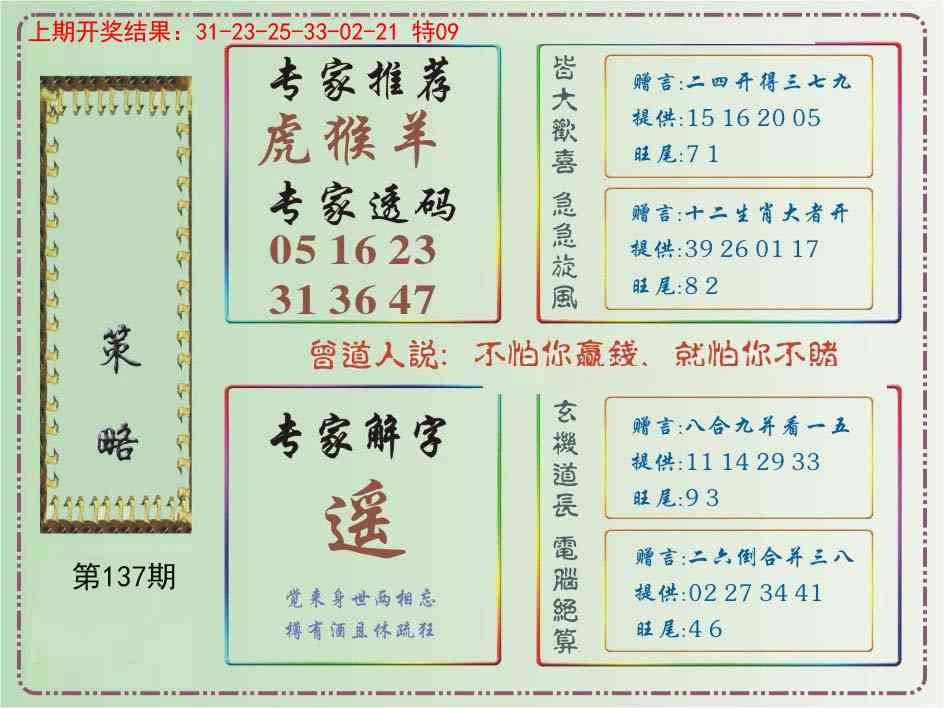 上期开奖结果：31-23-25-33-02-21 特09
策略
第137期
专家推荐
虎猴羊
专家透码
05 16 23
31 36 47
皆大歡喜
赠言:二四开得三七九
提供:15 16 20 05
旺尾:7 1
急急旋風
赠言:十二生肖大者开
提供:39 26 01 17
旺尾:8 2
曾道人説：不怕你赢錢、就怕你不賭
专家解字
遥
觉来身世两相忘
樽有酒且休疏狂
玄機道長
赠言:八合九并看一五
提供:11 14 29 33
旺尾:9 3
電腦絕算
赠言:二六倒合并三八
提供:02 27 34 41
旺尾:4 6